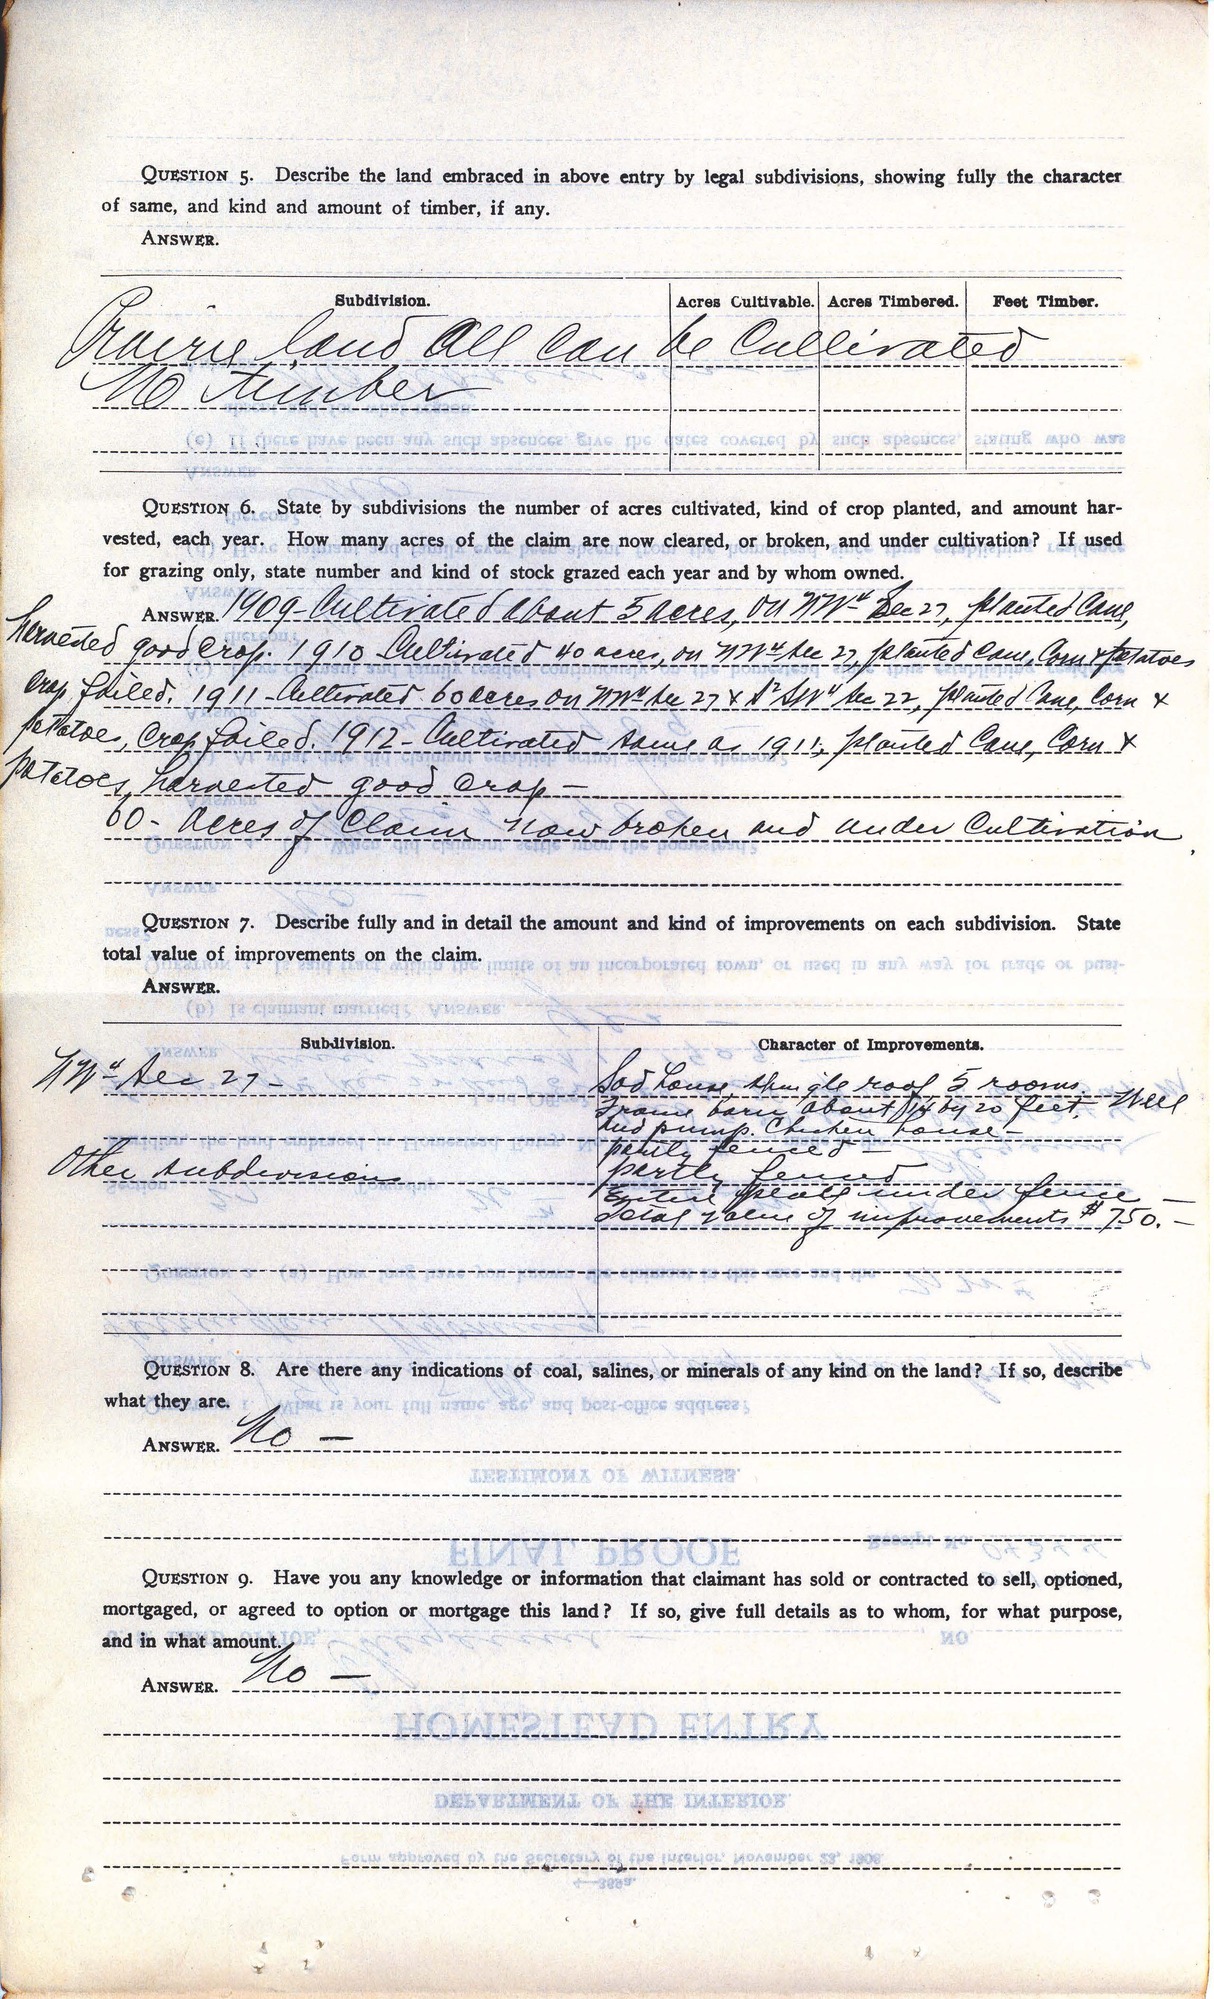 QUESTION 5. Describe the land embraced in above entry by legal subdivisions, showing fully the character
of same, and kind and amount of timber, if any.
ANSWER.
Subdivision. Acres Cultivable. Acres Timbered. Feet Timber.
Prairie land All Can be Cultivated
No timber
QUESTION 6. State by subdivisions the number of acres cultivated, kind of crop planted, and amount har-
vested, each year. How many acres of the claim are now cleared, or broken, and under cultivation? If used
for grazing only, state number and kind of stock grazed each year and by whom owned.
ANSWER. 1909- Cultivated about 5 acres, on NW4 Sec 27, planted Cane,
harvested good Crop. 1910- Cultivated 40 acres, on NW4 Sec 27, planted Cane, Corn & potatoes
Crop failed. 1911- Cultivated 60 acres on NW4 Sec 27 & S2 SW4 Sec 22, planted Cane, Corn &
potatoes, Crop failed. 1912- Cultivated same as 1911, planted Cane, Corn &
potatoes, harvested good Crop-
60- acres of Claim now broken and under Cultivation.
QUESTION 7. Describe fully and in detail the amount and kind of improvements on each subdivision. State
total value of improvements on the claim.
ANSWER.
Subdivision. Character of Improvements.
NW4 Sec 27- Sod house, shingle roof, 5 rooms
Frame barn about 14 by 20 feet, Well
and pump. Chicken house-
partly fenced-
Other subdivisions partly fenced
Entire place under fence-
total value of improvements $750.-
QUESTION 8. Are there any indications of coal, salines, or minerals of any kind on the land? If so, describe
what they are.
ANSWER. No-
QUESTION 9. Have you any knowledge or information that claimant has sold or contracted to sell, optioned,
mortgaged, or agreed to option or mortgage this land? If so, give full details as to whom, for what purpose,
and in what amount.
ANSWER. No-